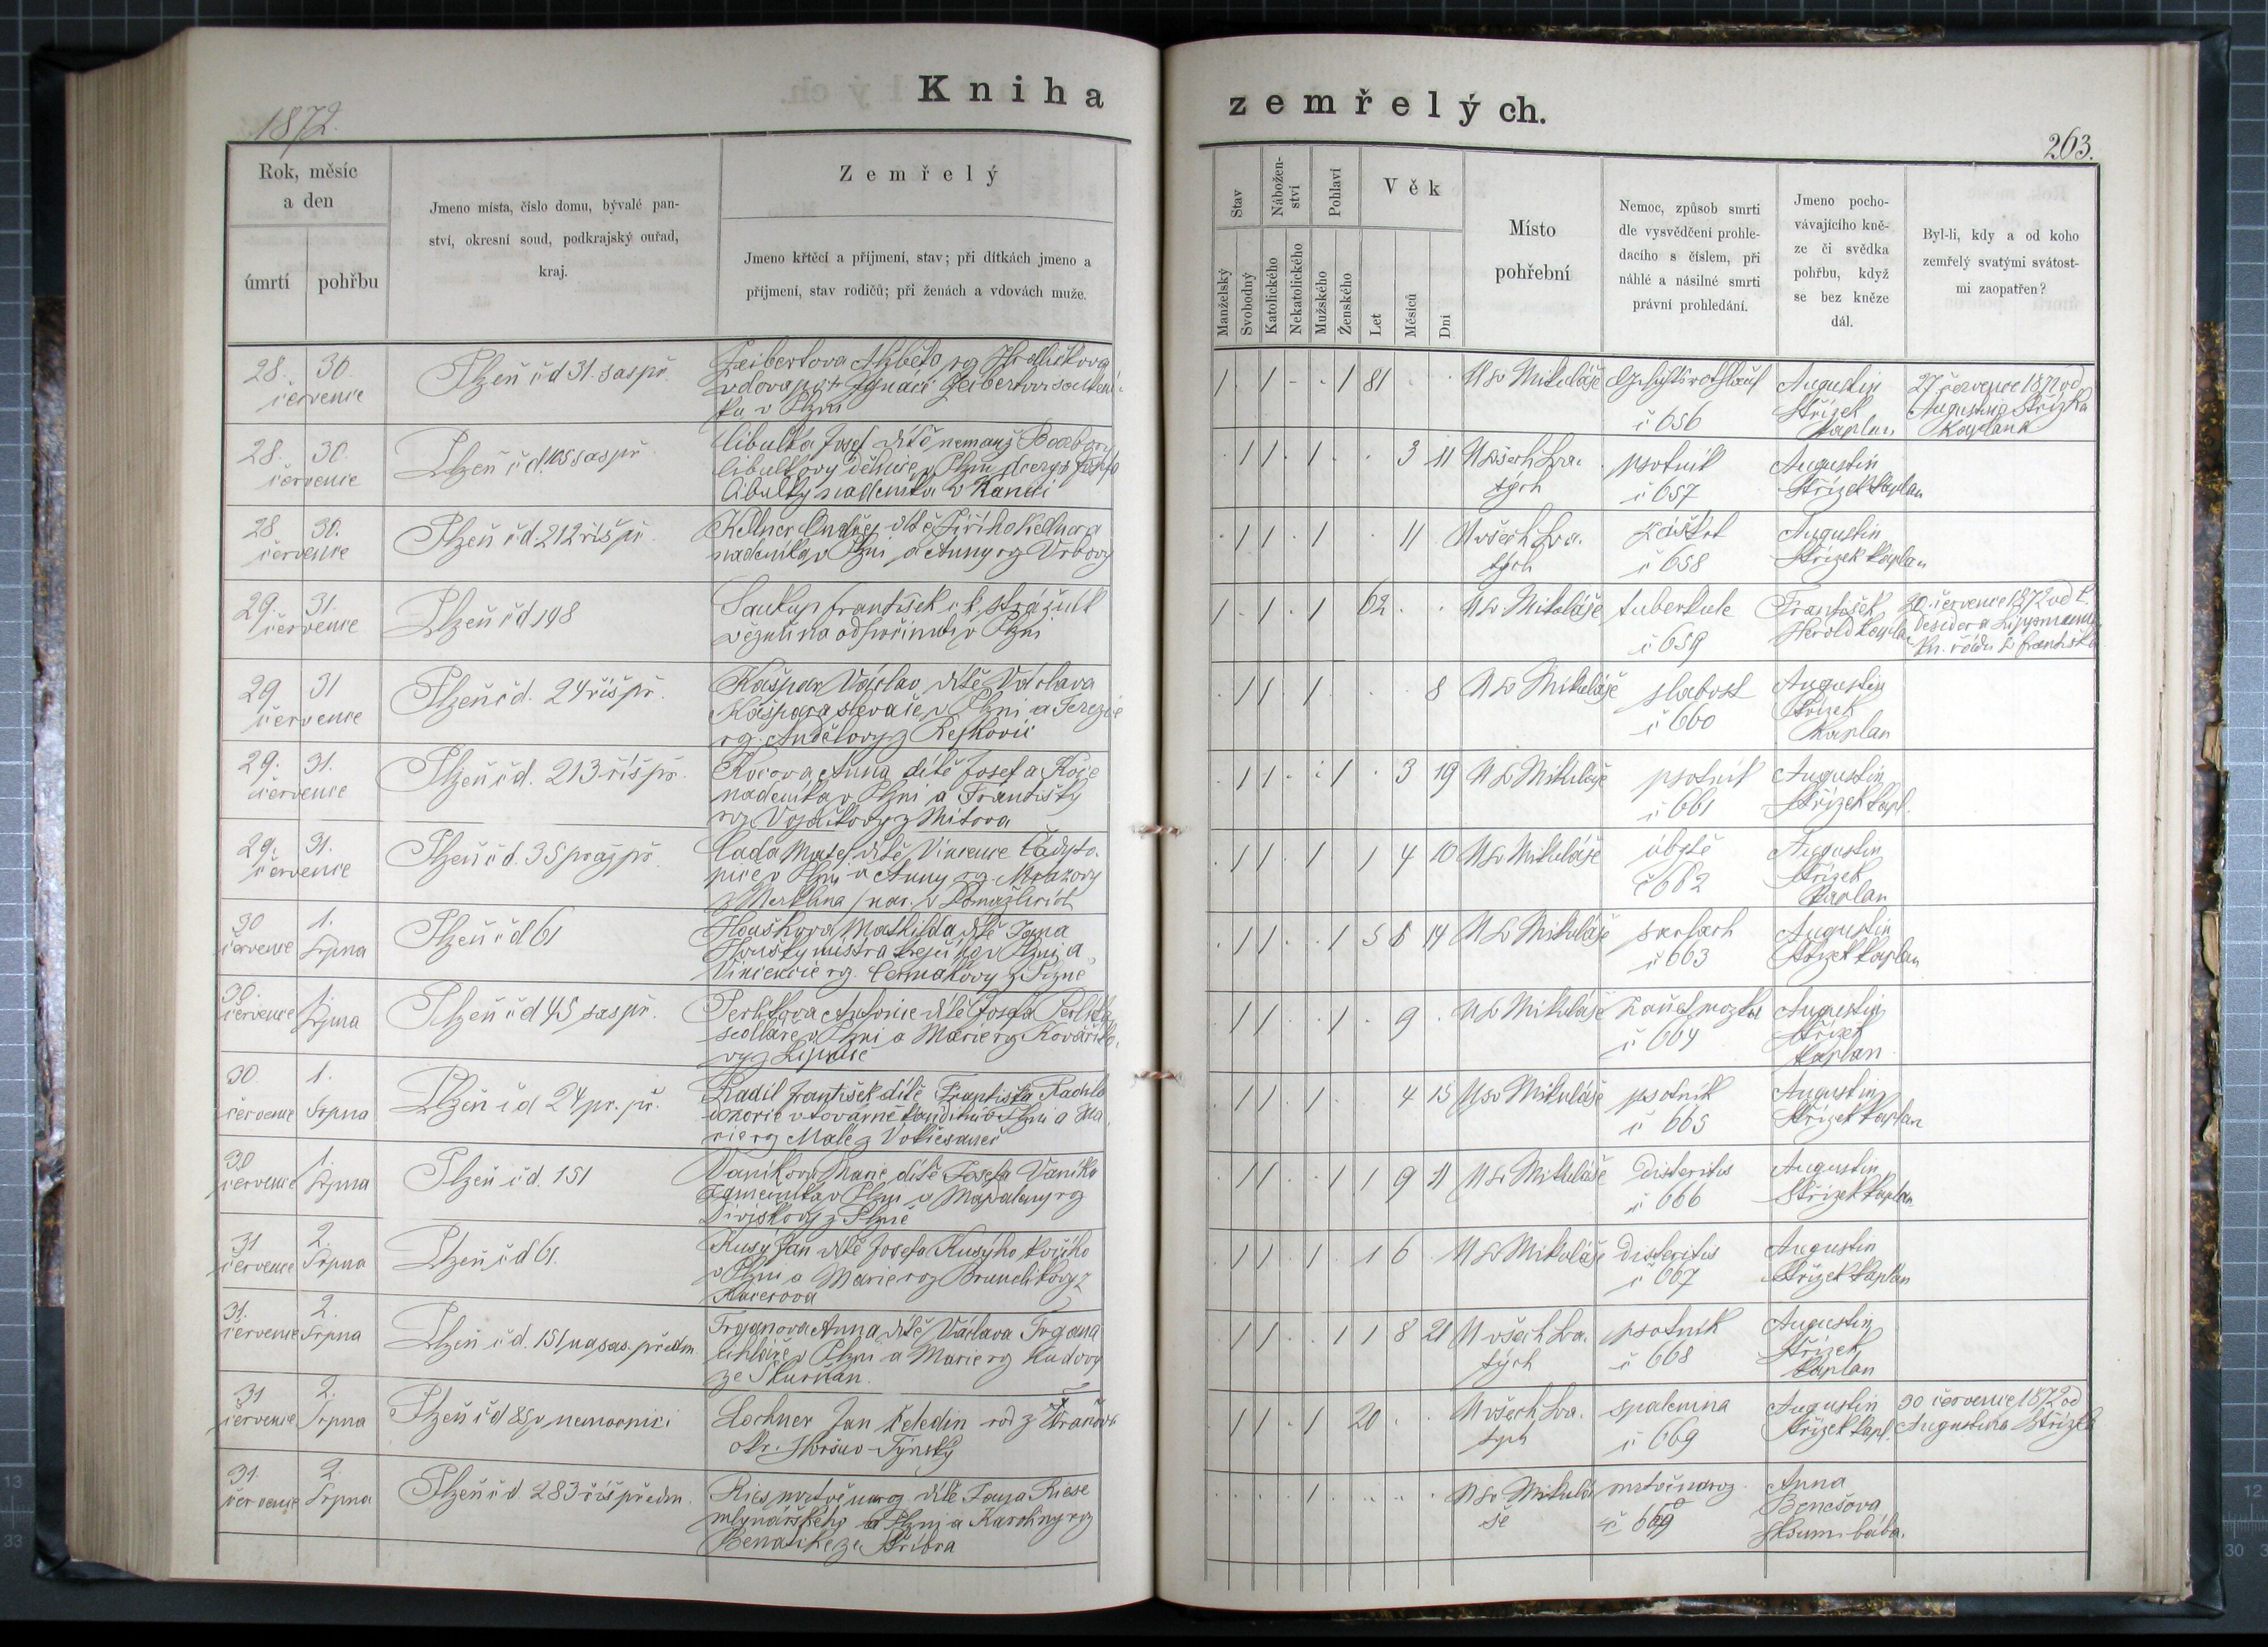 1872.
Kniha
zemřelých.
263.
Rok, měsíc
a den
úmrtí
pohřbu
Jmeno místa, číslo domu, bývalé pan-
ství, okresní soud, podkrajský ouřad,
kraj.
Zemřelý
Jmeno křtěcí a příjmení, stav; při dítkách jmeno a
příjmení, stav rodičů; při ženách a vdovách muže.
Stav
Manželský
Svobodný
Nábožen-
ství
Katolického
Nekatolického
Pohlaví
Mužského
Ženského
Věk
Let
Měsíců
Dní
Místo
pohřební
Nemoc, způsob smrti
dle vysvědčení prohle-
dacího s číslem, při
náhlé a násilné smrti
právní prohledání.
Jmeno pocho-
vávajícího kně-
ze či svědka
pohřbu, když
se bez kněze
dál.
Byl-li, kdy a od koho
zemřelý svatými svátost-
mi zaopatřen?
28. 30.
července
Plzeň čd 31. sas př.
vdova po
v Plzni
1 1 1 81
U sv Mikuláše
č 656
Augustin
Střízek
Kaplan
27 července 1872 od
Augustina Střízka
Kaplana
28. 30.
července
Plzeň čd. 105 sas př.
Cibulka Josef dítě nemanž Barbory
Cibulkovy děhnice v Plzni dcery Josefa
Cibulky nadeníka v
1 1 1 3 11
U všech Sva-
tých
psotník
č 657
Augustin
Střízek Kaplan
28 30.
července
Plzeň čd. 212 říš př.
Kellner Ondřej dítě Jiřího Kellnera
nadeníka v Plzni a Anny rz Vrbovy
1 1 1 11
U všech Sva-
tých
záškrt
č 658
Augustin
Střízek Kaplan
29. 31.
července
Plzeň čd 198
Soukup František c. k. strážník
věznice na odpočinutí v Plzni
1 1 1 62
U sv Mikuláše
tuberkule
č 659
František
Herold Kaplan
20. července 1872 od P.
Desidera Lippmanna
kn. řádu S. Františka
29 31
července
Plzeň čd. 24 říš př.
Kašpar Václav dítě Václava
Kašpara slevače v Plzni a Terezie
rz. Andělovy z
1 1 1 8
U sv Mikuláše
slabost
č 660
Augustin
Střízek
Kaplan
29. 31.
července
Plzeň čd. 213 říš př.
Kocova Anna dítě Josefa Koce
nadeníka v Plzni a Františky
roz. Vojáčkovy z Mitova
1 1 1 3 19
U sv Mikuláše
psotník
č 661
Augustin
Střízek Kapl.
29. 31.
července
Plzeň čd. 35 praž př.
Čada Matěj dítě Vincence Čady to-
piče v Plzni a Anny rz. Mrazovy
z Merklína / nar. v Domažlicích
1 1 1 1 4 10
U sv Mikuláše
úbytě
č 662
Augustin
Střízek
Kaplan
30 1.
července Srpna
Plzeň čd 61
Houškova Mathilda dítě Jana
Houšky mistra krejčího v Plzni a
Vincencie rz. Čermákovy z Plzně
1 1 1 5 8 14
U sv Mikuláše
skrlach
č 663
Augustin
Střízek Kaplan
30. 1.
července Srpna
Plzeň čd 45 sas př.
Antonie dítě Josefa
sedlaře v Plzni a Marie rz Kovaříko-
vy z
1 1 1 9
U sv Mikuláše
zánět mozku
č 664
Augustin
Střízek
Kaplan
30 1.
července Srpna
Plzeň čd 24 pr. př.
Radil František dítě Františka Radila
dozorce v továrně v Plzni a Ma-
rie rz Malé z
1 1 1 4 15
U sv Mikuláše
psotník
č 665
Augustin
Střízek Kaplan
30 1.
července Srpna
Plzeň čd. 151
Vaníkova Marie dítě Josefa Vaníka
v Plzni a Magdaleny rz
Diviškovy z Plzně
1 1 1 1 9 11
U sv Mikuláše
Disteritis
č 666
Augustin
Střízek Kaplan
31 2.
července Srpna
Plzeň čd 61.
Kusý Jan dítě Josefa Kusýho kočího
v Plzni a Marie rz Brunclíkovy z
Kacerova
1 1 1 1 6
U sv Mikuláše
Disteritis
č 667
Augustin
Střízek Kaplan
31. 2.
července Srpna
Plzeň čd. 151 na sas. předm.
Trganova Anna dítě Václava Trgana
uhlíře v Plzni a Marie rz Kudovy
ze Skurňan.
1 1 1 1 8 21
U všech Sva-
tých
psotník
č 668
Augustin
Střízek
Kaplan
31 2.
července Srpna
Plzeň čd 85 v nemocnici
Lochner Jan čeledín rod z
okr. Horšuo-Týnský
1 1 1 20
U všech Sva-
tých
spalenina
č 669
Augustin
Střízek Kapl.
30 července 1872 od
Augustina Střízka
31. 2.
července Srpna
Plzeň čd 283 říš předm.
Ries mrtvě naroz. dítě Jana Riese
mlynářského v Plzni a Karoliny rz
ze Stříbra
1
U sv Mikulá-
še
mrtvě naroz.
Anna
Benešova
zkoum. bába.